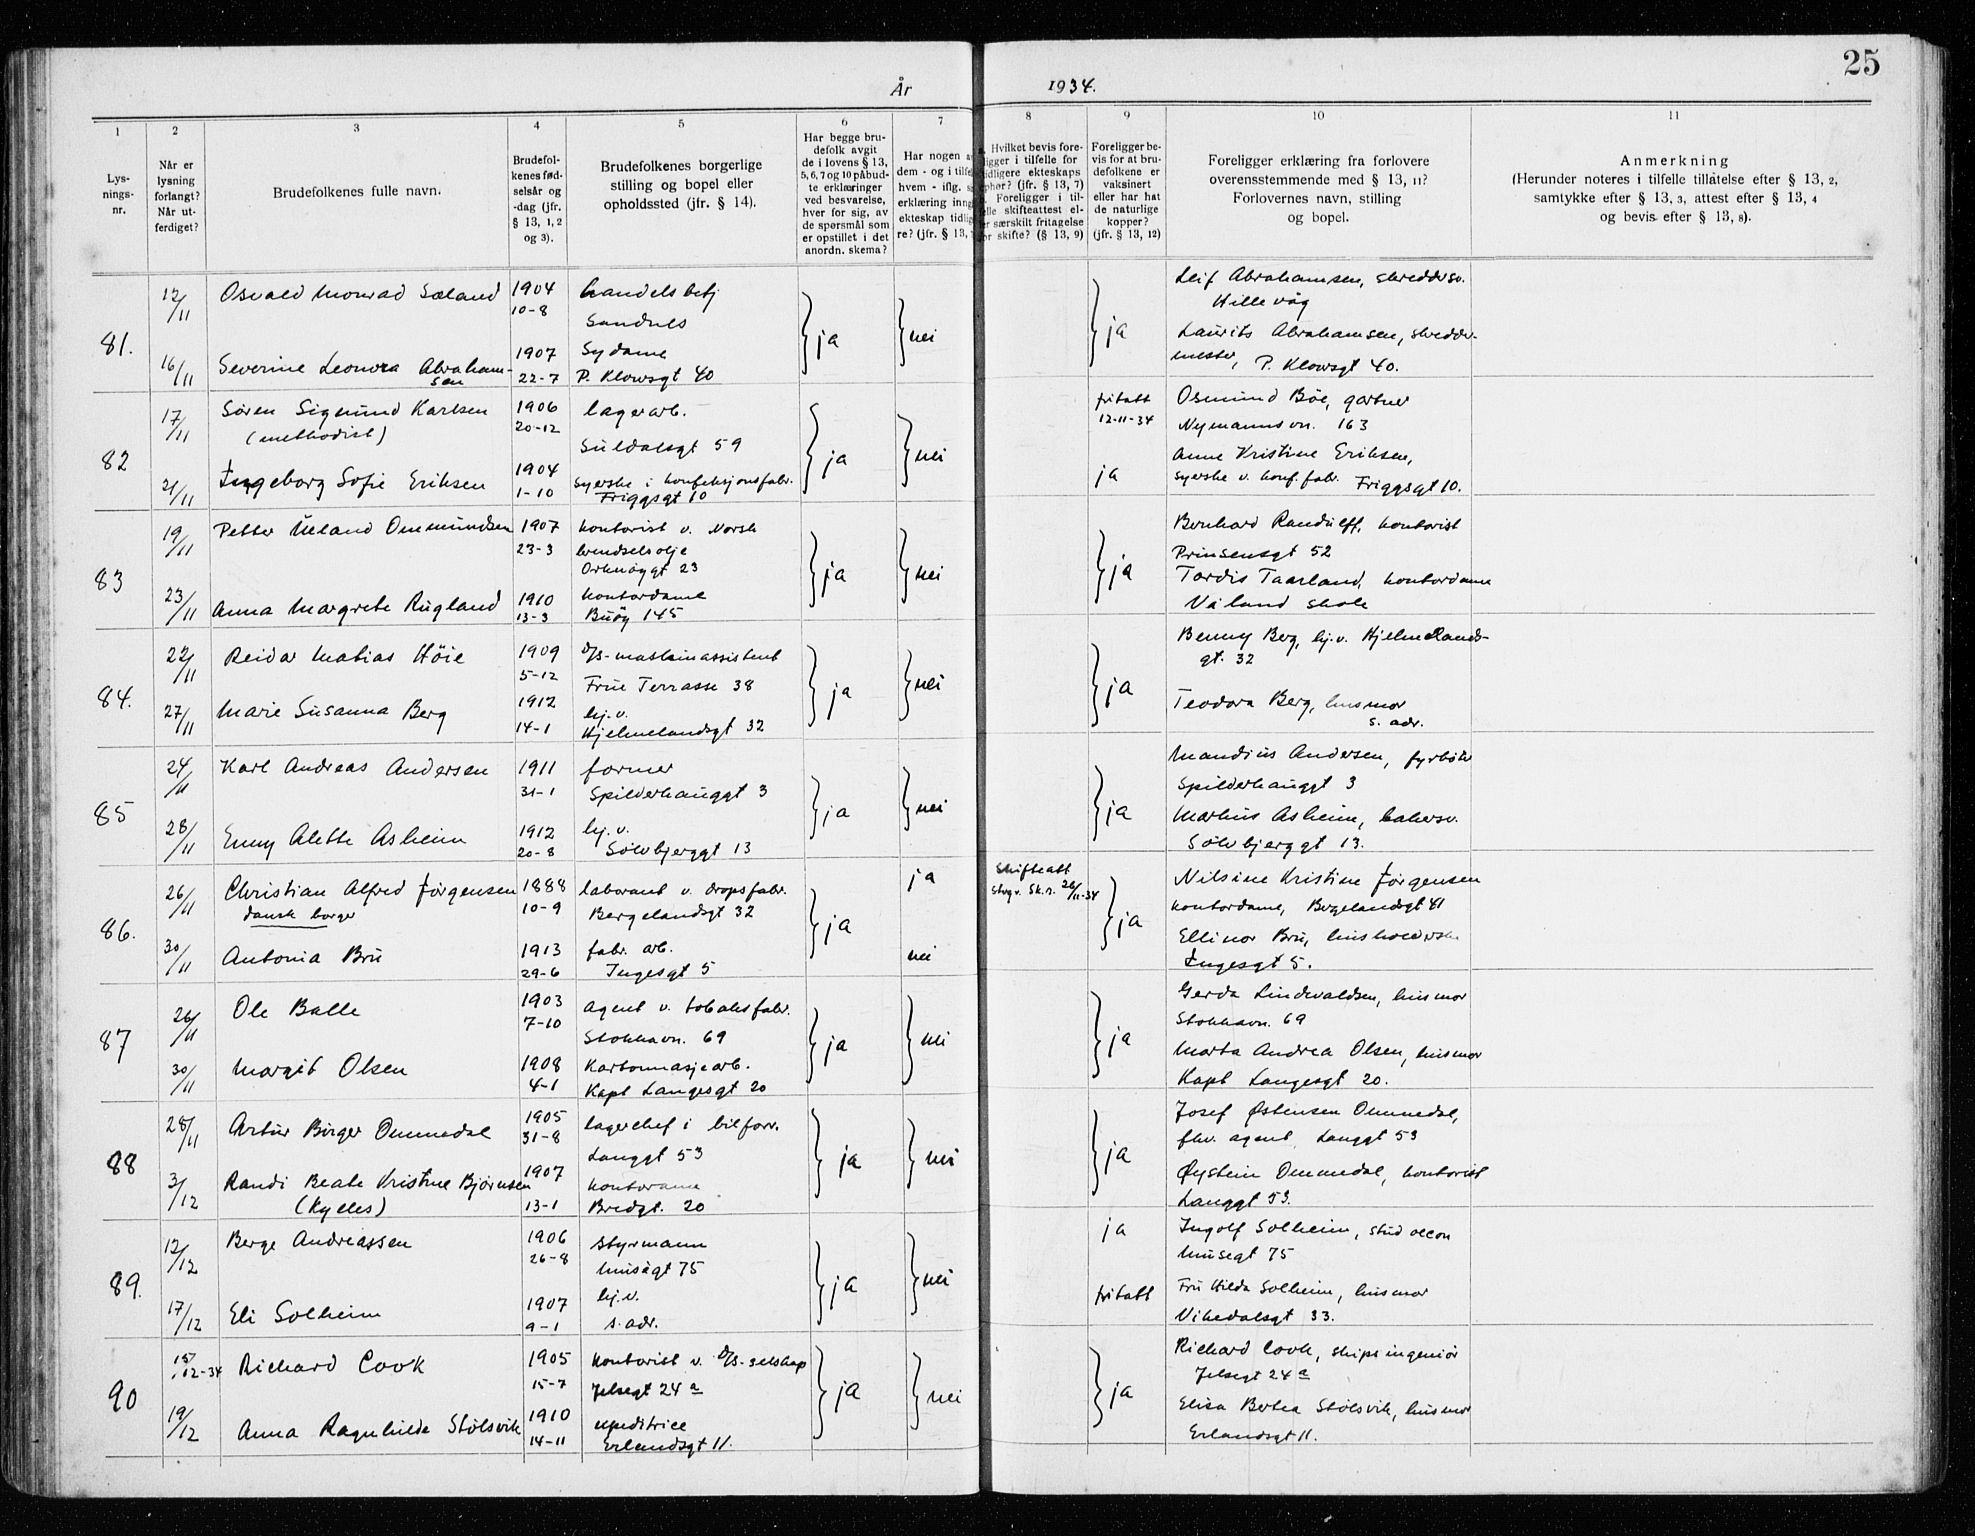 25
År 1934.
1 2 3 4 5 6 7 8 9 10 11
Lys-
nings-
nr.
Når er
lysning
forlangt?
Når ut-
ferdiget?
Brudefolkenes fulle navn.
Brudefol-
kenes fød-
selsår og
-dag (jfr.
§ 13, 1, 2
og 3).
Brudefolkenes borgerlige
stilling og bopel eller
opholdssted (jfr. § 14).
Har begge bru-
defolk avgit
de i lovens § 13,
5, 6, 7 og 10 påbud-
te erklæringer
ved besvarelse,
hver for sig, av
de spørsmål som
er opstillet i det
anordn. skema?
Har nogen a
dem - og i tilfe
hvem - iflg. s
erklæring inng
ekteskap tidlig
re? (jfr. § 13,
Hvilket bevis fore-
ligger i tilfelle for
idligere ekteskaps
ophør? (jfr. § 13, 7)
Foreligger i til-
elle skifteattest el-
er særskilt fritagelse
or skifte? (§ 13, 9)
Foreligger be-
vis for at bru-
defolkene er
vaksinert
eller har hat
de naturlige
kopper?
(jfr. § 13, 12)
Foreligger erklæring fra forlovere
overensstemmende med § 13, 11?
Forlovernes navn, stilling
og bopel.
Anmerkning
(Herunder noteres i tilfelle tillatelse efter § 13, 2,
samtykke efter § 13, 3, attest efter § 13, 4
og bevis efter § 13, 8).
81.
12/11 Osvald Monrad Sæland 1904 10-8 handelsbetj
Sandnes
16/11 Severine Leonora Abraham-
sen 1907 22-7 Sydame
P. Klowsgt 40
ja nei ja
Leif Abrahamsen, skreddersv.
Hillevåg
Laurits Abrahamsen, skredder-
mester, P. Klowsgt 40.
82
17/11 Søren Sigmund Karlsen 1906 20-12 lagerarb.
(methodist)
Suldalsgt 59
21/11 Ingeborg Sofie Eriksen 1904 1-10 syerske i konfeksjonsfabr.
Friggsgt 10
ja nei
fritatt
12-11-34
ja
Osmund Bøe, gartner
Nymannsvn. 163
Anne Kristine Eriksen,
syerske v. konf. fabr. Friggsgt 10.
83
19/11 Petter Ueland Ommundsen 1907 23-3 kontorist v. Norsk
brendselsolje
Orknøygt 23
23/11 Anna Margrete Rugland 1910 13-3 kontordame
Buøy 145
ja nei ja
Bernhard Randulff, kontorist
Prinsensgt 52
Tordis Taarland, kontordame
Våland skole
84.
22/11 Reidar Matias Höie 1909 5-12 D/S-maskinassistent
Frue Terrasse 38
27/11 Marie Susanna Berg 1912 14-1 hj. v.
Hjelmelandsgt 32
ja nei ja
Benny Berg, hj. v. Hjelmelands-
gt. 32
Teodora Berg, husmor
s. adr.
85
24/11 Karl Andreas Andersen 1911 31-1 former
Spilderhauggt 3
28/11 Enny Alette Asheim 1912 20-8 hj. v.
Sølvbjerggt 13
ja nei ja
Mandius Andersen, fyrbøter
Spilderhauggt 3
Markus Asheim, bakersv.
Sølvbjerggt 13.
86.
26/11 Christian Alfred Jørgensen 1888 10-9 laborant v. dropsfabr.
dansk borger Bergelandsgt 32
30/11 Antonia Bru 1913 29-6 fabr. arb.
Ingesgt 5
ja ja
nei
Skifteatt
Stvgr. Sk.r. 26/11-34
ja
Nilsine Kristine Jørgensen
kontordame, Bergelandsgt 41
Ellinor Bru, husholderske
Ingesgt 5.
87
26/11 Ole Balle 1903 7-10 agent v. tobaksfabr.
Stokkavn. 69
30/11 Margit Olsen 1908 4-1 Kartonnasjearb.
Kapt Langesgt 20
ja nei ja
Gerda Lindvaldsen, husmor
Stokkavn. 69
Marta Andrea Olsen, husmor
Kapt Langesgt 20.
88
28/11 Artur Birger Ommedal 1905 31-8 lagerchef i bilforr.
Langgt 53
3/12 Randi Beate Kristine Bjørnsen 1907 13-1
(Kylles) Bredgt. 20
ja nei ja
Josef Østensen Ommedal,
fhv. agent Langgt 53
Øystein Ommedal, kontorist
Langgt 53.
89.
12/12 Berge Andreassen 1906 26-8 styrmann
Musegt 75
17/12 Eli Solheim 1907 9-1 hj. v.
s. adr.
ja nei
ja
fritatt
Ingolf Solheim, stud oecon
Musegt 75
Fru Hilda Solheim, husmor
Vikedalsgt 33.
90
15/12-34 Richard Cook 1905 15-7 kontorist v. D/S-selskap
Jelsegt 24a
19/12 Anna Ragnhilde Stølsvik 1910 14-11 expeditrice
Erlandsgt 11.
ja nei ja
Richard Cook, skipsingeniør
Jelsegt 24a
Elisa Bertea Stølsvik, husmor
Erlandsgt 11.